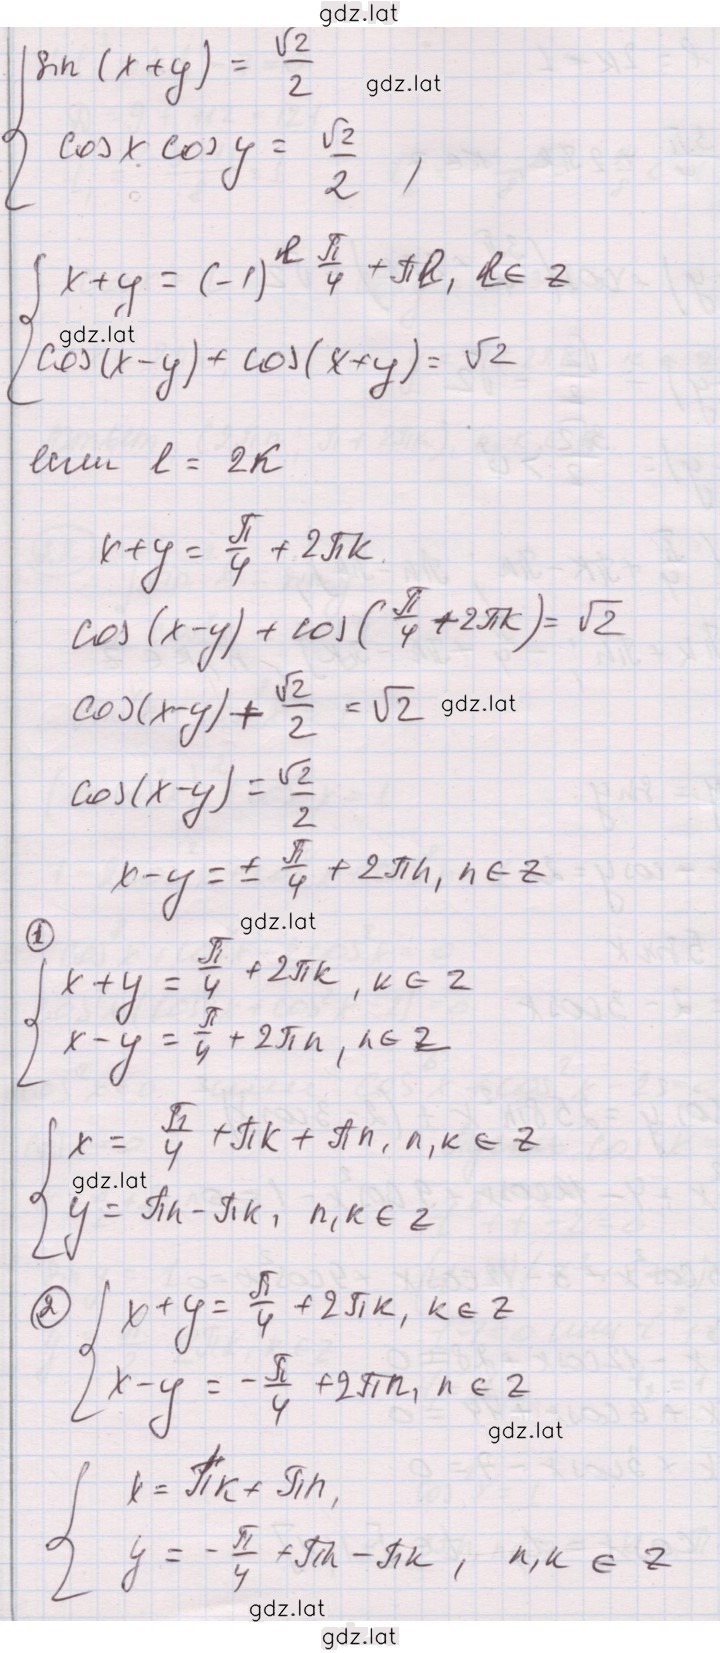 gdz.lat
sin (x+y) = √2/2
gdz.lat
cos x cos y = √2/2 ,
x+y = (-1)^l π/4 + πl, l ∈ Z
gdz.lat
cos(x-y) + cos(x+y) = √2
если l = 2k
x+y = π/4 + 2πk
cos(x-y) + cos(π/4 + 2πk) = √2
cos(x-y) + √2/2 = √2 gdz.lat
cos(x-y) = √2/2
x-y = ± π/4 + 2πn, n ∈ Z
gdz.lat
①
x+y = π/4 + 2πk, k ∈ Z
x-y = π/4 + 2πn, n ∈ Z
x = π/4 + πk + πn, n,k ∈ Z
gdz.lat
y = πn - πk, n,k ∈ Z
② x+y = π/4 + 2πk, k ∈ Z
x-y = -π/4 + 2πn, n ∈ Z
gdz.lat
x = πk + πn,
y = -π/4 + πn - πk, n,k ∈ Z
gdz.lat
gdz.lat